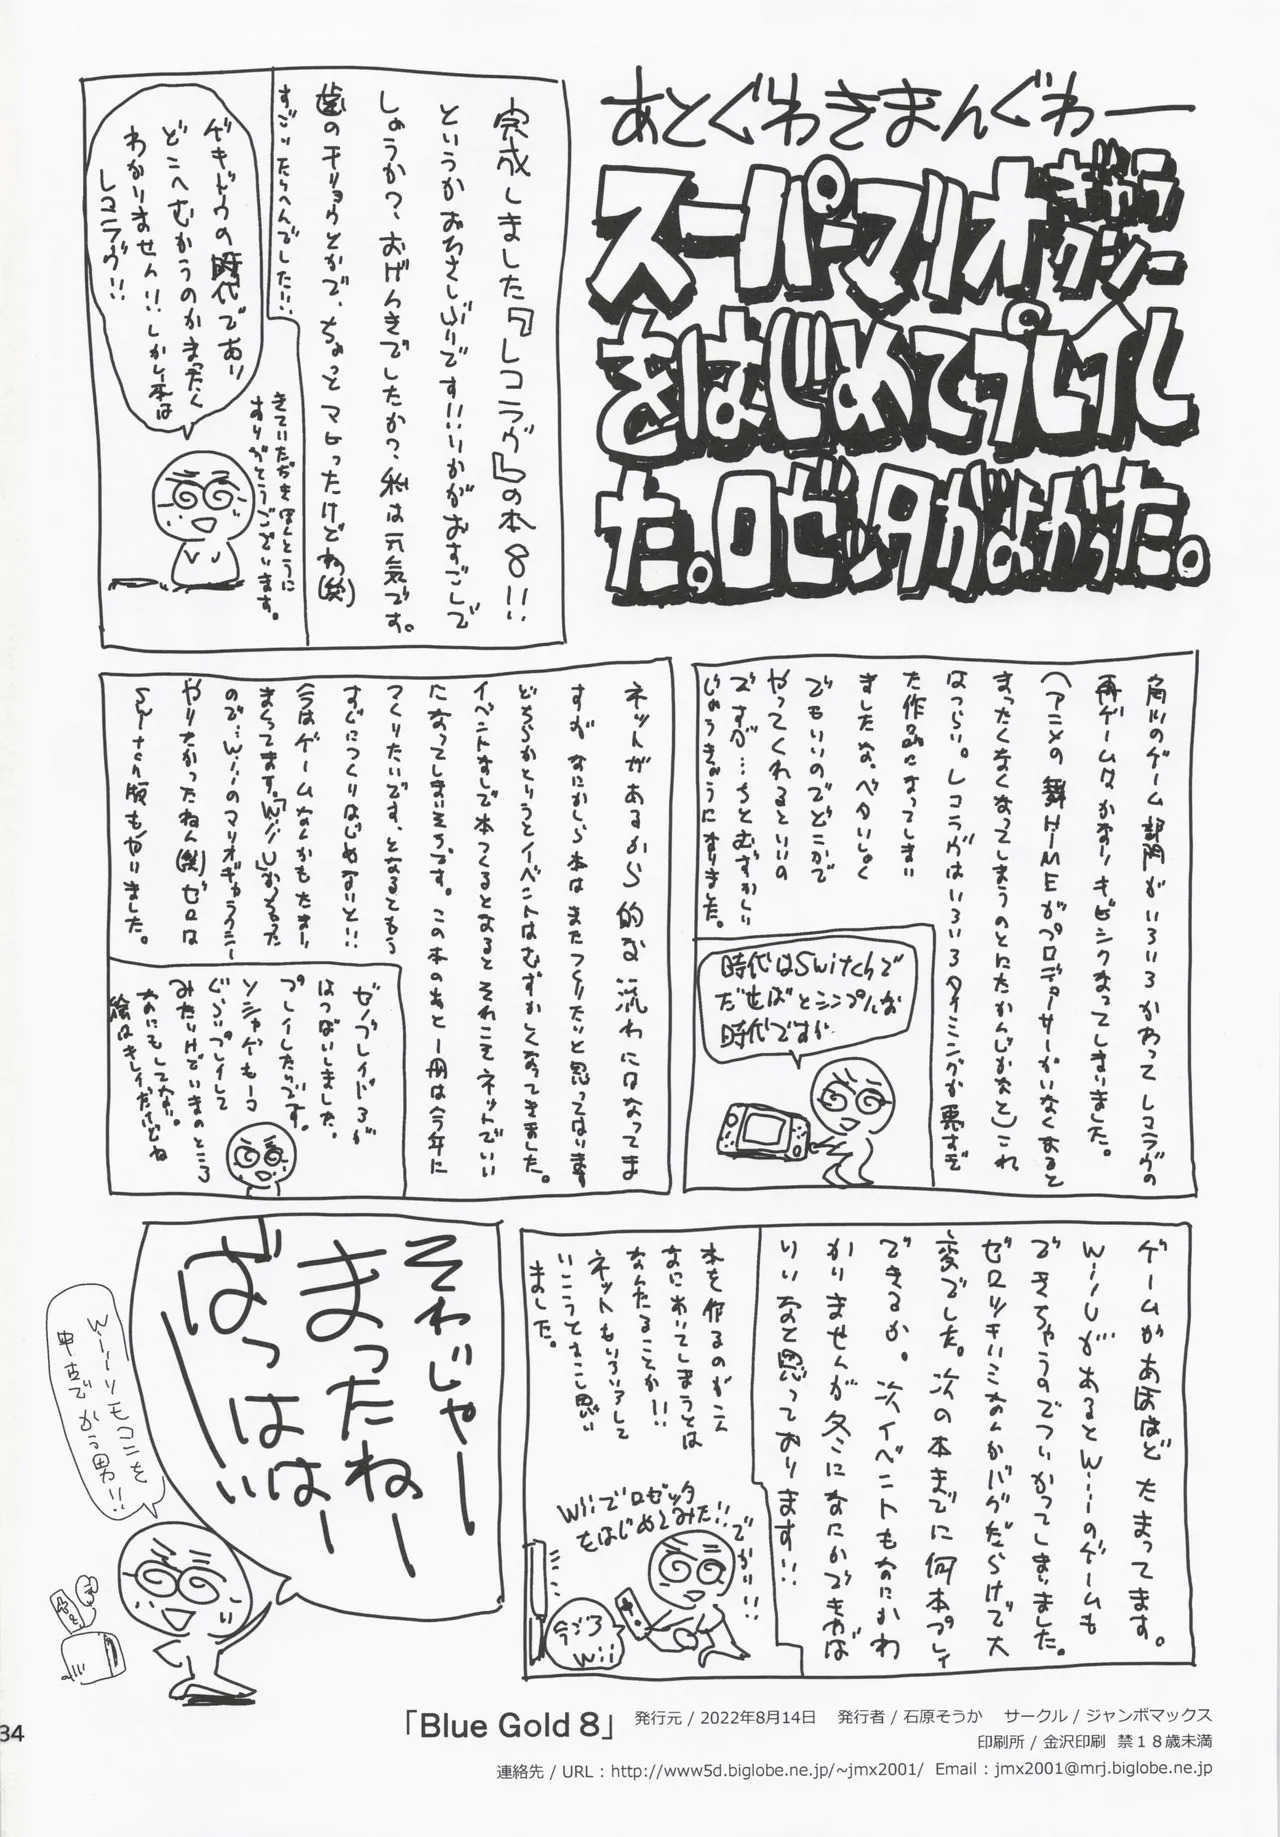 あとぐわきまんぐわー
スーパーマリオギャラクシー
をはじめてプレイし
た。ロゼッタがよかった。
完成しました『レコラヴ』の本8!!
というかおひさしぶりです!!いかがおすごしで
しょうか?、おげんきでしたか?私は元気です。
歯のチリョウとかで、ちょっとマヒったけどね(笑)
すごいたいへんでした!!
ゲキドウの時代であり
どこへむかうのかまったく
わかりません!!しかし本は
レコラヴ!!
きていただきほんとうに
ありがとうございます。
角川のゲーム部門がいろいろかわってレコラヴの
再ゲームはかなりキビシクなってしまいました。
(アニメの舞HiMEがプロデューサーがいなくなると
まったくなくなってしまうのとにたかんじかなと)これ
はつらい。レコラヴはいろいろタイミングが悪すぎ
た作品になってしまい
ましたな。ベタいしく
でもいいのでどこかで
やってくれるといいの
ですが…ちとむずかしい
じょうきょうになりました。
時代はSwitchで
だせばとシンプルな
時代ですが
ネットがあるから的な流れにはなってま
すが なにかしら本はまたつくりたいと思ってはいます
どちらかというとイベントはむずかしくなってきました。
イベントなしで本つくるとなるとそれこそネットでいい
になってしまいそうです。この本のあと一冊は今年に
つくりたいです。となるともう
すぐにつくりはじめないと!!
今はゲームなんかもたまり
まくってます。「WiiU」かえるた
ので…Wiiのマリオギャラクシー
やりたかったねん(笑)ゼロは
Switch版もやりました。
ゼノブレイド3が
はつばいしました。
プレイしたいです。
ソシャゲも一コ
ぐらいプレイして
みたいけでいまのところ
なにもしてない。
絵はキレイだけどね
ゲームがあほほどたまってます。
WiiUがあるとWiiのゲームも
できちゃうのでついかってしまいました。
ゼロツキいこなんかバグだらけで大
変でした。次の本までに何本プレイ
できるか。次イベントもなにかわ
かりませんが冬になにかできれば
いいなと思っております!!
本を作るのがこん
なにあいてしまうとは
なんたることか!!
ネットもいろいろして
いこうとすこし思い
ました。
Wiiでロゼッタ
をはじめてみた!!
でかい!!
今ごろ
Wii
それじゃー
まったねー
ばっはは
ーい
Wiiリモコンを
中古でかう男!!
34
「Blue Gold 8」 発行元 / 2022年8月14日 発行者 / 石原そうか サークル / ジャンボマックス
印刷所 / 金沢印刷 禁18歳未満
連絡先 / URL : http://www5d.biglobe.ne.jp/~jmx2001/ Email : jmx2001@mrj.biglobe.ne.jp